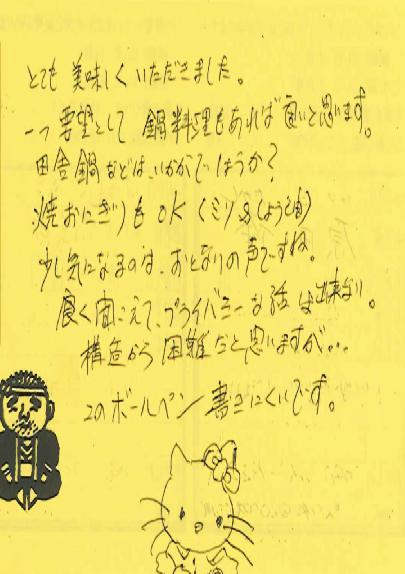 とても 美味しくいただきました。
一つ要望として 鍋料理もあれば良いと思います。
田舎鍋などは、いかがでしょうか?
焼おにぎりも OK (ミソ&しょう油)
少し気になるのは、おとなりの声ですね。
良く聞こえて、プライバシーな話は出来ない。
構造から 困難だと思いますが...
このボールペン 書きにくいです。